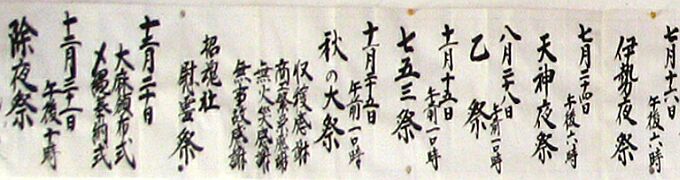 七月十六日
午後六時
伊勢夜祭
七月二十四日
午後六時
天神夜祭
八月二十八日
午前一〇時
乙祭
十一月十五日
午前一〇時
七五三祭
十一月二十五日
午前一〇時
秋の大祭
収穫感謝
商工繁栄感謝
無火災感謝
無事故感謝
招魂社
慰霊祭
十二月二十日
大麻頒布式
〆縄奉納式
十二月三十一日
午後十時
除夜祭